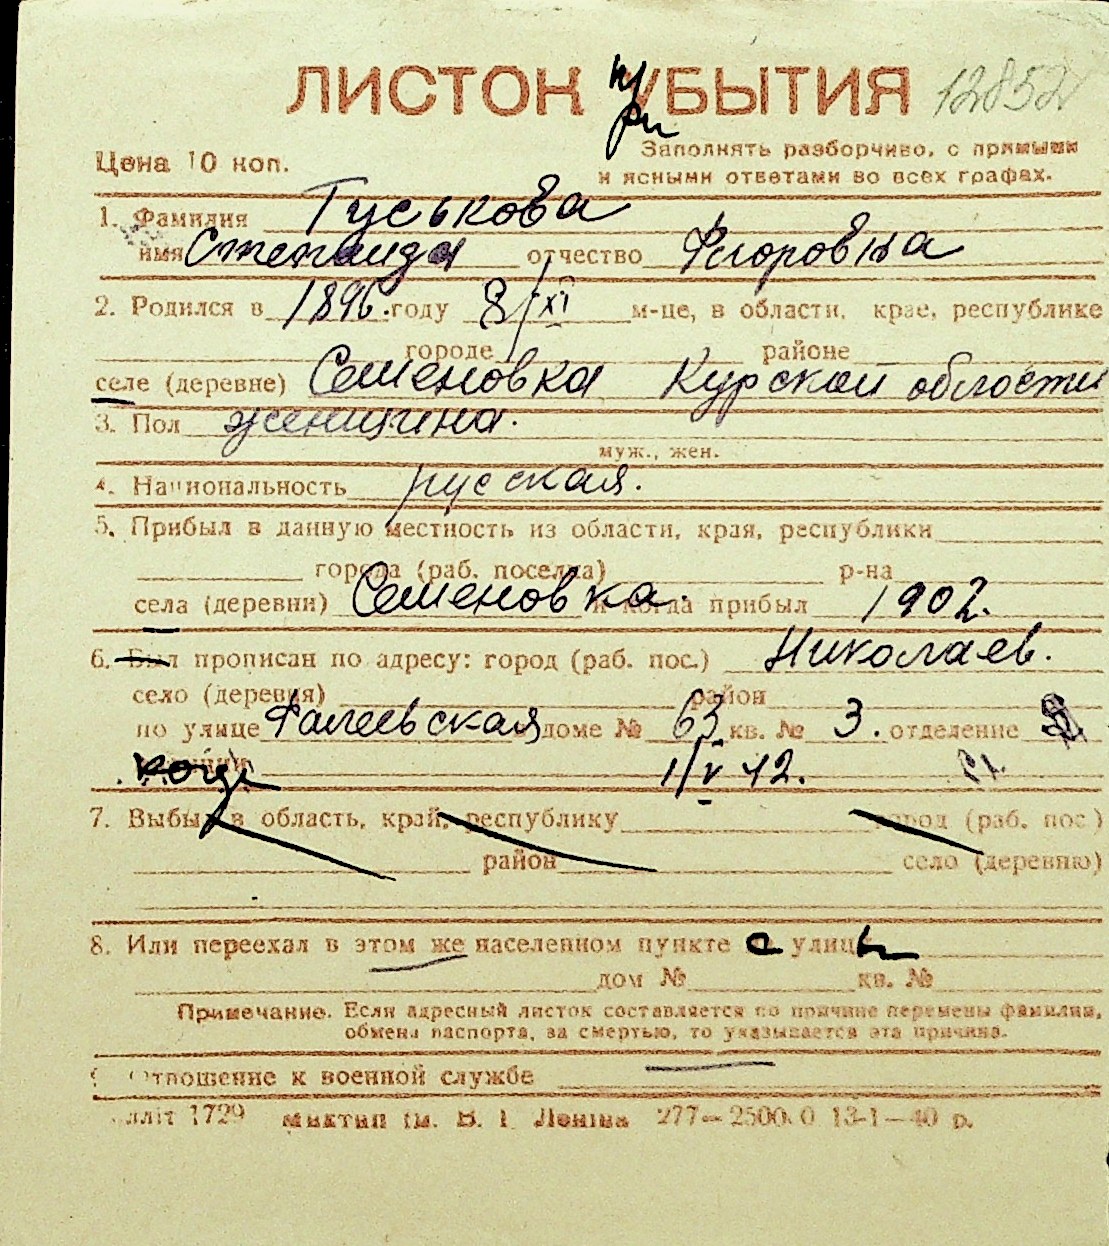 ЛИСТОК при УБЫТИЯ 12852
Цена 10 коп.
Заполнять разборчиво, с прямыми
и ясными ответами во всех графах.
1. Фамилия Гуськова
имя Степанида отчество Фёгоровна
2. Родился в 1896. году 8/XI м-це, в области, крае, республике
городе районе
селе (деревне) Семеновка Курской области
3. Пол женщина.
муж., жен.
4. Национальность русская.
5. Прибыл в данную местность из области, края, республики
города (раб. поселка) р-на
села (деревни) Семеновка. и когда прибыл 1902.
6. Был прописан по адресу: город (раб. пос.) Николаев.
село (деревня) район
по улице Фалеевская доме № 63 кв. № 3. отделение
когда 1/V 42.
7. Выбыл в область, край, республику город (раб. пос.)
район село (деревню)
8. Или переехал в этом же населенном пункте с улицы
дом № кв. №
Примечание. Если адресный листок составляется по причине перемены фамилии,
обмена паспорта, за смертью, то указывается эта причина.
Отношение к военной службе
лліт 1729 Миктип ім. В. І. Леніна 277—2500.0 13-1—40 р.